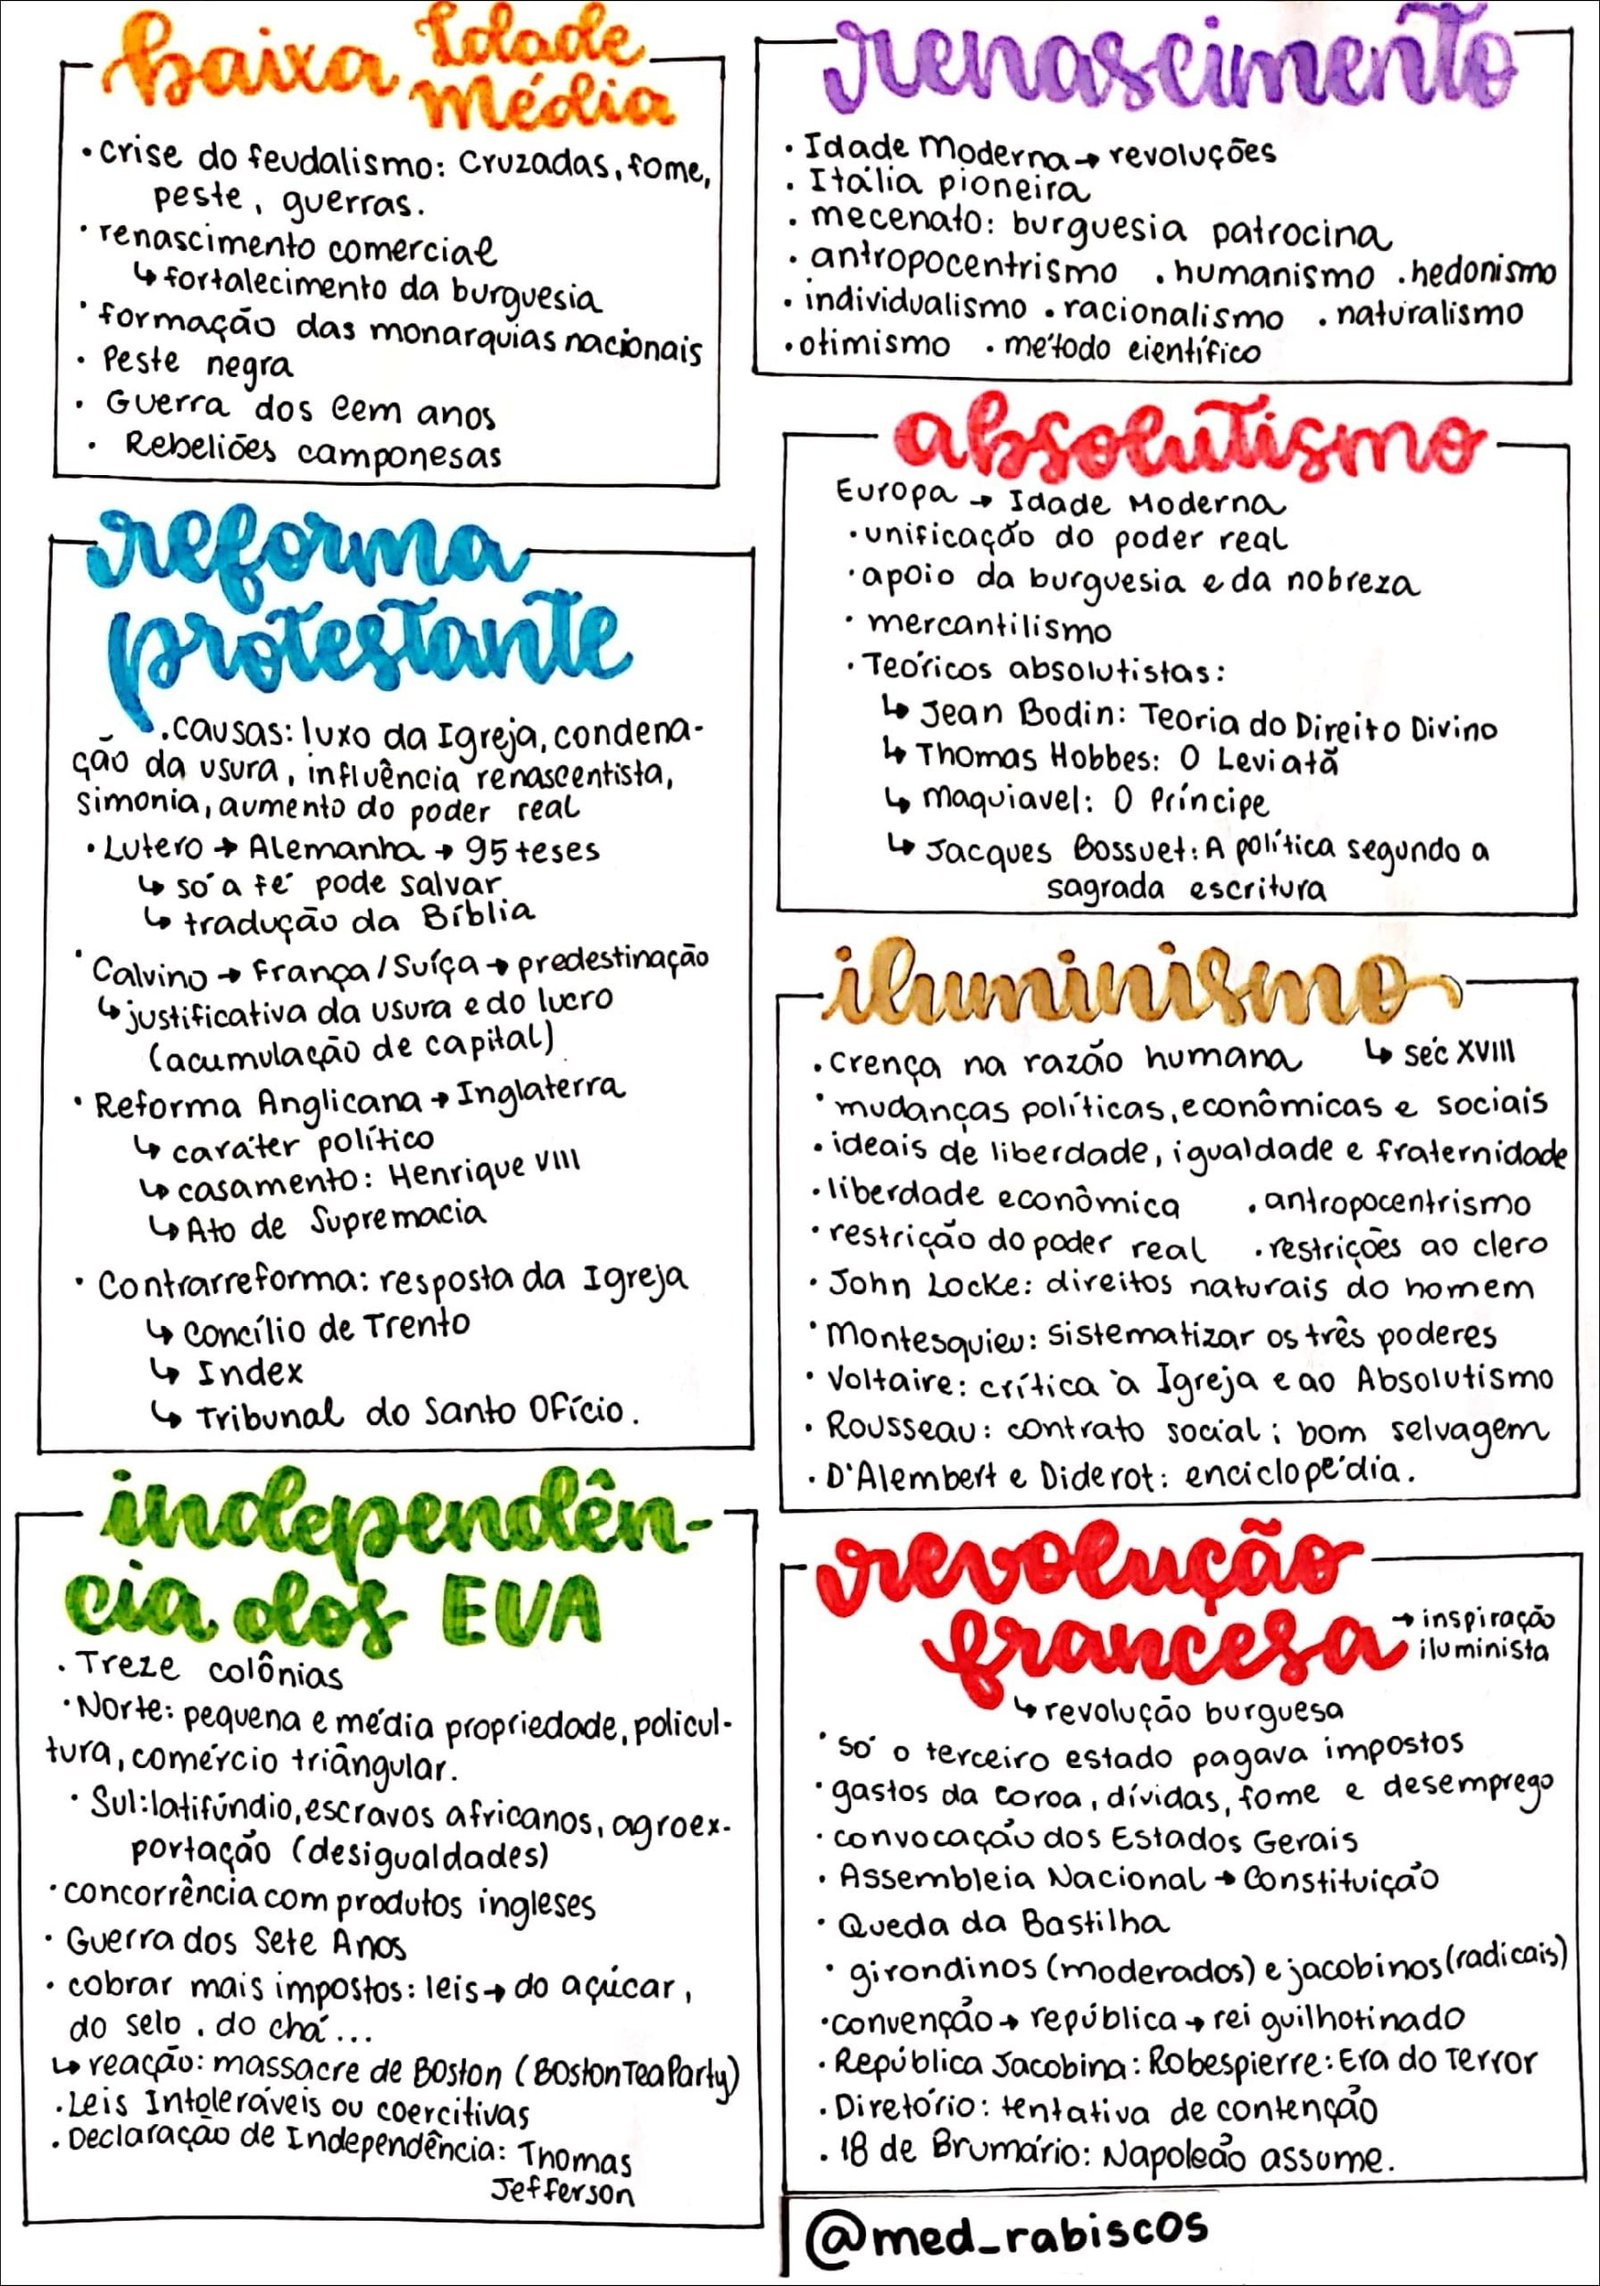 baixa Idade
média
• crise do feudalismo: Cruzadas, fome,
peste, guerras.
• renascimento comercial
↳ fortalecimento da burguesia
• formação das monarquias nacionais
• Peste negra
• Guerra dos cem anos
• Rebeliões camponesas
reforma
protestante
• causas: luxo da Igreja, condena-
ção da usura, influência renascentista,
simonia, aumento do poder real
• Lutero → Alemanha → 95 teses
↳ só a fé pode salvar
↳ tradução da Bíblia
• Calvino → França/Suíça → predestinação
↳ justificativa da usura e do lucro
(acumulação de capital)
• Reforma Anglicana → Inglaterra
↳ caráter político
↳ casamento: Henrique VIII
↳ Ato de Supremacia
• Contrarreforma: resposta da Igreja
↳ Concílio de Trento
↳ Index
↳ Tribunal do Santo Ofício.
independên-
cia dos EUA
• Treze colônias
• Norte: pequena e média propriedade, policul-
tura, comércio triângular.
• Sul: latifúndio, escravos africanos, agroex-
portação (desigualdades)
• concorrência com produtos ingleses
• Guerra dos Sete Anos
• cobrar mais impostos: leis → do açúcar,
do selo, do chá...
↳ reação: massacre de Boston (Boston Tea Party)
• Leis Intoleráveis ou coercitivas
• Declaração de Independência: Thomas
Jefferson
renascimento
• Idade Moderna → revoluções
• Itália pioneira
• mecenato: burguesia patrocina
• antropocentrismo • humanismo • hedonismo
• individualismo • racionalismo • naturalismo
• otimismo • método científico
absolutismo
Europa → Idade Moderna
• unificação do poder real
• apoio da burguesia e da nobreza
• mercantilismo
• Teóricos absolutistas:
↳ Jean Bodin: Teoria do Direito Divino
↳ Thomas Hobbes: O Leviatã
↳ Maquiavel: O Príncipe
↳ Jacques Bossuet: A política segundo a
sagrada escritura
iluminismo
↳ séc XVIII
• crença na razão humana
• mudanças políticas, econômicas e sociais
• ideais de liberdade, igualdade e fraternidade
• liberdade econômica • antropocentrismo
• restrição do poder real • restrições ao clero
• John Locke: direitos naturais do homem
• Montesquieu: sistematizar os três poderes
• Voltaire: crítica à Igreja e ao Absolutismo
• Rousseau: contrato social; bom selvagem
• D'Alembert e Diderot: enciclopédia.
revolução
francesa → inspiração
iluminista
↳ revolução burguesa
• só o terceiro estado pagava impostos
• gastos da coroa, dívidas, fome e desemprego
• convocação dos Estados Gerais
• Assembleia Nacional → Constituição
• Queda da Bastilha
• girondinos (moderados) e jacobinos (radicais)
• convenção → república → rei guilhotinado
• República Jacobina: Robespierre: Era do Terror
• Diretório: tentativa de contenção
• 18 de Brumário: Napoleão assume.
@med_rabiscos